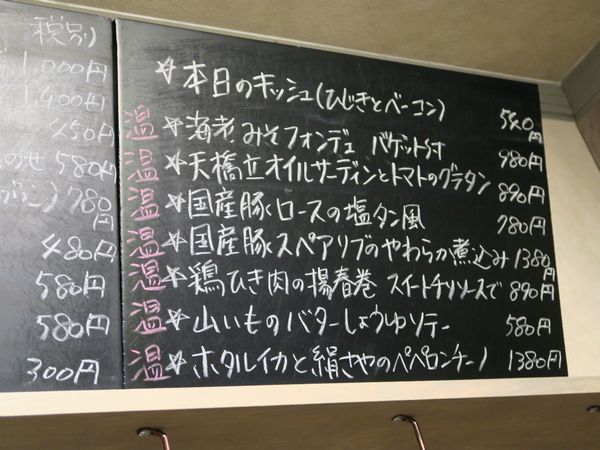 税別)
1,000円
1,400円
450円
のせ 580円
780円
480円
580円
580円
300円
☆本日のキッシュ(ひじきとベーコン) 540円
温☆海老みそフォンデュ バゲット付 980円
温☆天橋立オイルサーディンとトマトのグラタン 890円
温☆国産豚ロースの塩タン風 780円
温☆国産豚スペアリブのやわらか煮込み 1380円
温☆鶏ひき肉の揚春巻 スイートチリソースで 890円
温☆山いものバターしょうゆソテー 580円
温☆ホタルイカと絹さやのペペロンチーノ 1380円